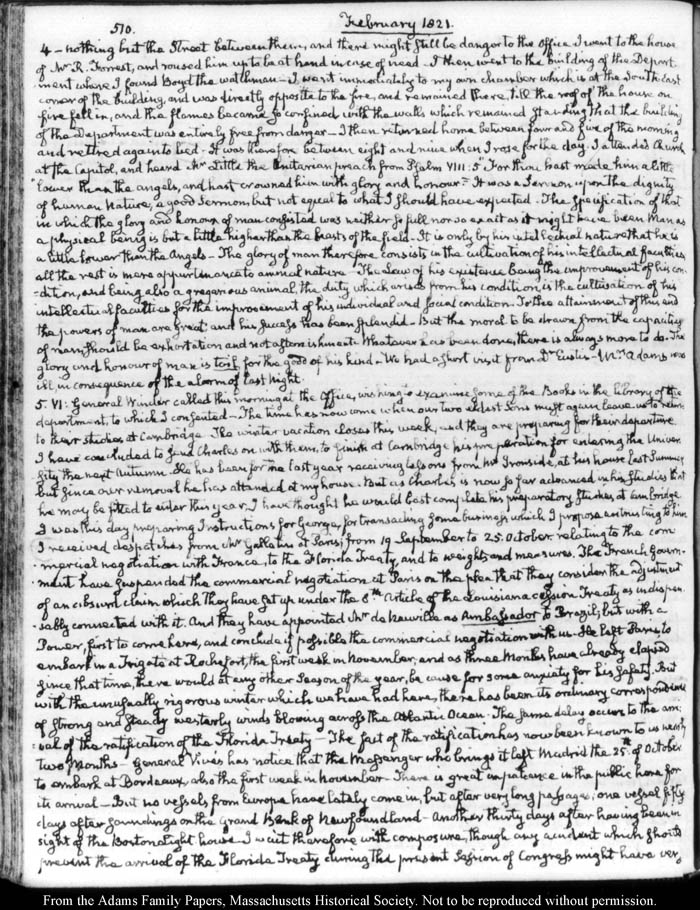 510.
February 1821.
4 – nothing but the Street between them, and there might still be danger to the office I went to the house
of Mr R. Forrest, and roused him up to be at hand in case of need. I then went to the building of the Depart-
ment where I found Boyd the watchman – I went immediately to my own chamber which is at the South East
corner of the building, and was directly opposite to the fire, and remained there, till the roof of the house on
fire fell in, and the flames became so confined with the walls which remained standing that the building
of the Department was entirely free from danger – I then returned home between four and five of the morning
and retired again to bed – It was therefore between eight and nine when I rose for the day. I attended Church
at the Capitol, and heard Mr Little the Unitarian preach from Psalm VIII: 5 "For thou hast made him a little
"lower than the angels, and hast crowned him with glory and honour." It was a Sermon upon the dignity
of human Nature, a good Sermon, but not equal to what I should have expected. The Specification of that
in which the glory and honour of man consisted was neither so full nor so exact as it might have been Man as
a physical being is but a little higher than the beasts of the field – It is only by his intellectual nature that he is
a little lower than the Angels – The glory of man therefore consists in the cultivation of his intellectual faculties
all the rest is mere appurtenance to animal nature – The Law of his existence being the improvement of his con-
-dition, and being also a gregarious animal, the duty which arises from his condition, is the cultivation of his
intellectual faculties for the improvement of his individual and social condition. To the attainment of this end
the powers of man are great; and his success has been splendid – But the moral to be drawn from the capacity
of man should be exhortation and not astonishment. Whatever has been done, there is always more to do. The
glory and honour of man is toil for the good of his kind – We had a short visit from Dr Eustis – Mrs Adams was
ill, in consequence of the alarm of last Night.
5. VI: General Winder called this morning at the Office, wishing to examine some of the Books in the library of the
department, to which I consented – The time has now come when our two eldest Sons must again leave us to return
to their studies at Cambridge. The winter vacation closes this week, and they are preparing for their departure
I have concluded to send Charles on with them, to finish at Cambridge his preparation for entering the Univer-
sity the next Autumn. He has been for the last year receiving lessons from Mr Ironside, at his house last Summer
but since our removal he has attended at my house. But as Charles is now so far advanced in his studies that
he may be fitted to enter this year, I have thought he would best complete his preparatory studies, at Cambridge
I was this day preparing Instructions for George, for transacting some business which I propose entrusting to him.
I received despatches from Mr Gallatin at Paris, from 19 September to 25. October. relating to the com-
-mercial negotiation with France, to the Florida Treaty, and to weights and measures. The French Govern-
-ment have suspended the commercial negotiation at Paris on the plea that they consider the adjustment
of an absurd claim which they have set up under the 8th Article of the Louisiana cession Treaty as indispen-
-sably connected with it. And they have appointed Mr de Neuville as Ambassador to Brazil, but with a
Power, first to come here, and conclude if possible the commercial negotiation with us. He left Paris, to
embark in a Frigate at Rochefort, the first week in November, and as three Months have already elapsed
since that time, there would at any other season of the year, be cause for some anxiety for his safety. But
with the unusually rigorous winter which we have had here, there has been its ordinary correspondence
of strong and steady westerly winds blowing across the Atlantic Ocean. The same delay occurs to the arri-
-val of the ratification of the Florida Treaty – The fact of the ratification has now been known to us nearly
two Months – General Vives has notice that the Messenger who brings it left Madrid the 25th of October
to embark at Bordeaux, also the first week in November – There is great impatience in the public here for
its arrival – But no vessels from Europe have lately come in, but after very long passages; one vessel fifty
days after soundings on the Grand Bank of Newfoundland – Another thirty days after having been in
sight of the Boston light house – I wait therefore with composure, though any accident which should
prevent the arrival of the Florida Treaty during the present Session of Congress might have very
From the Adams Family Papers, Massachusetts Historical Society. Not to be reproduced without permission.